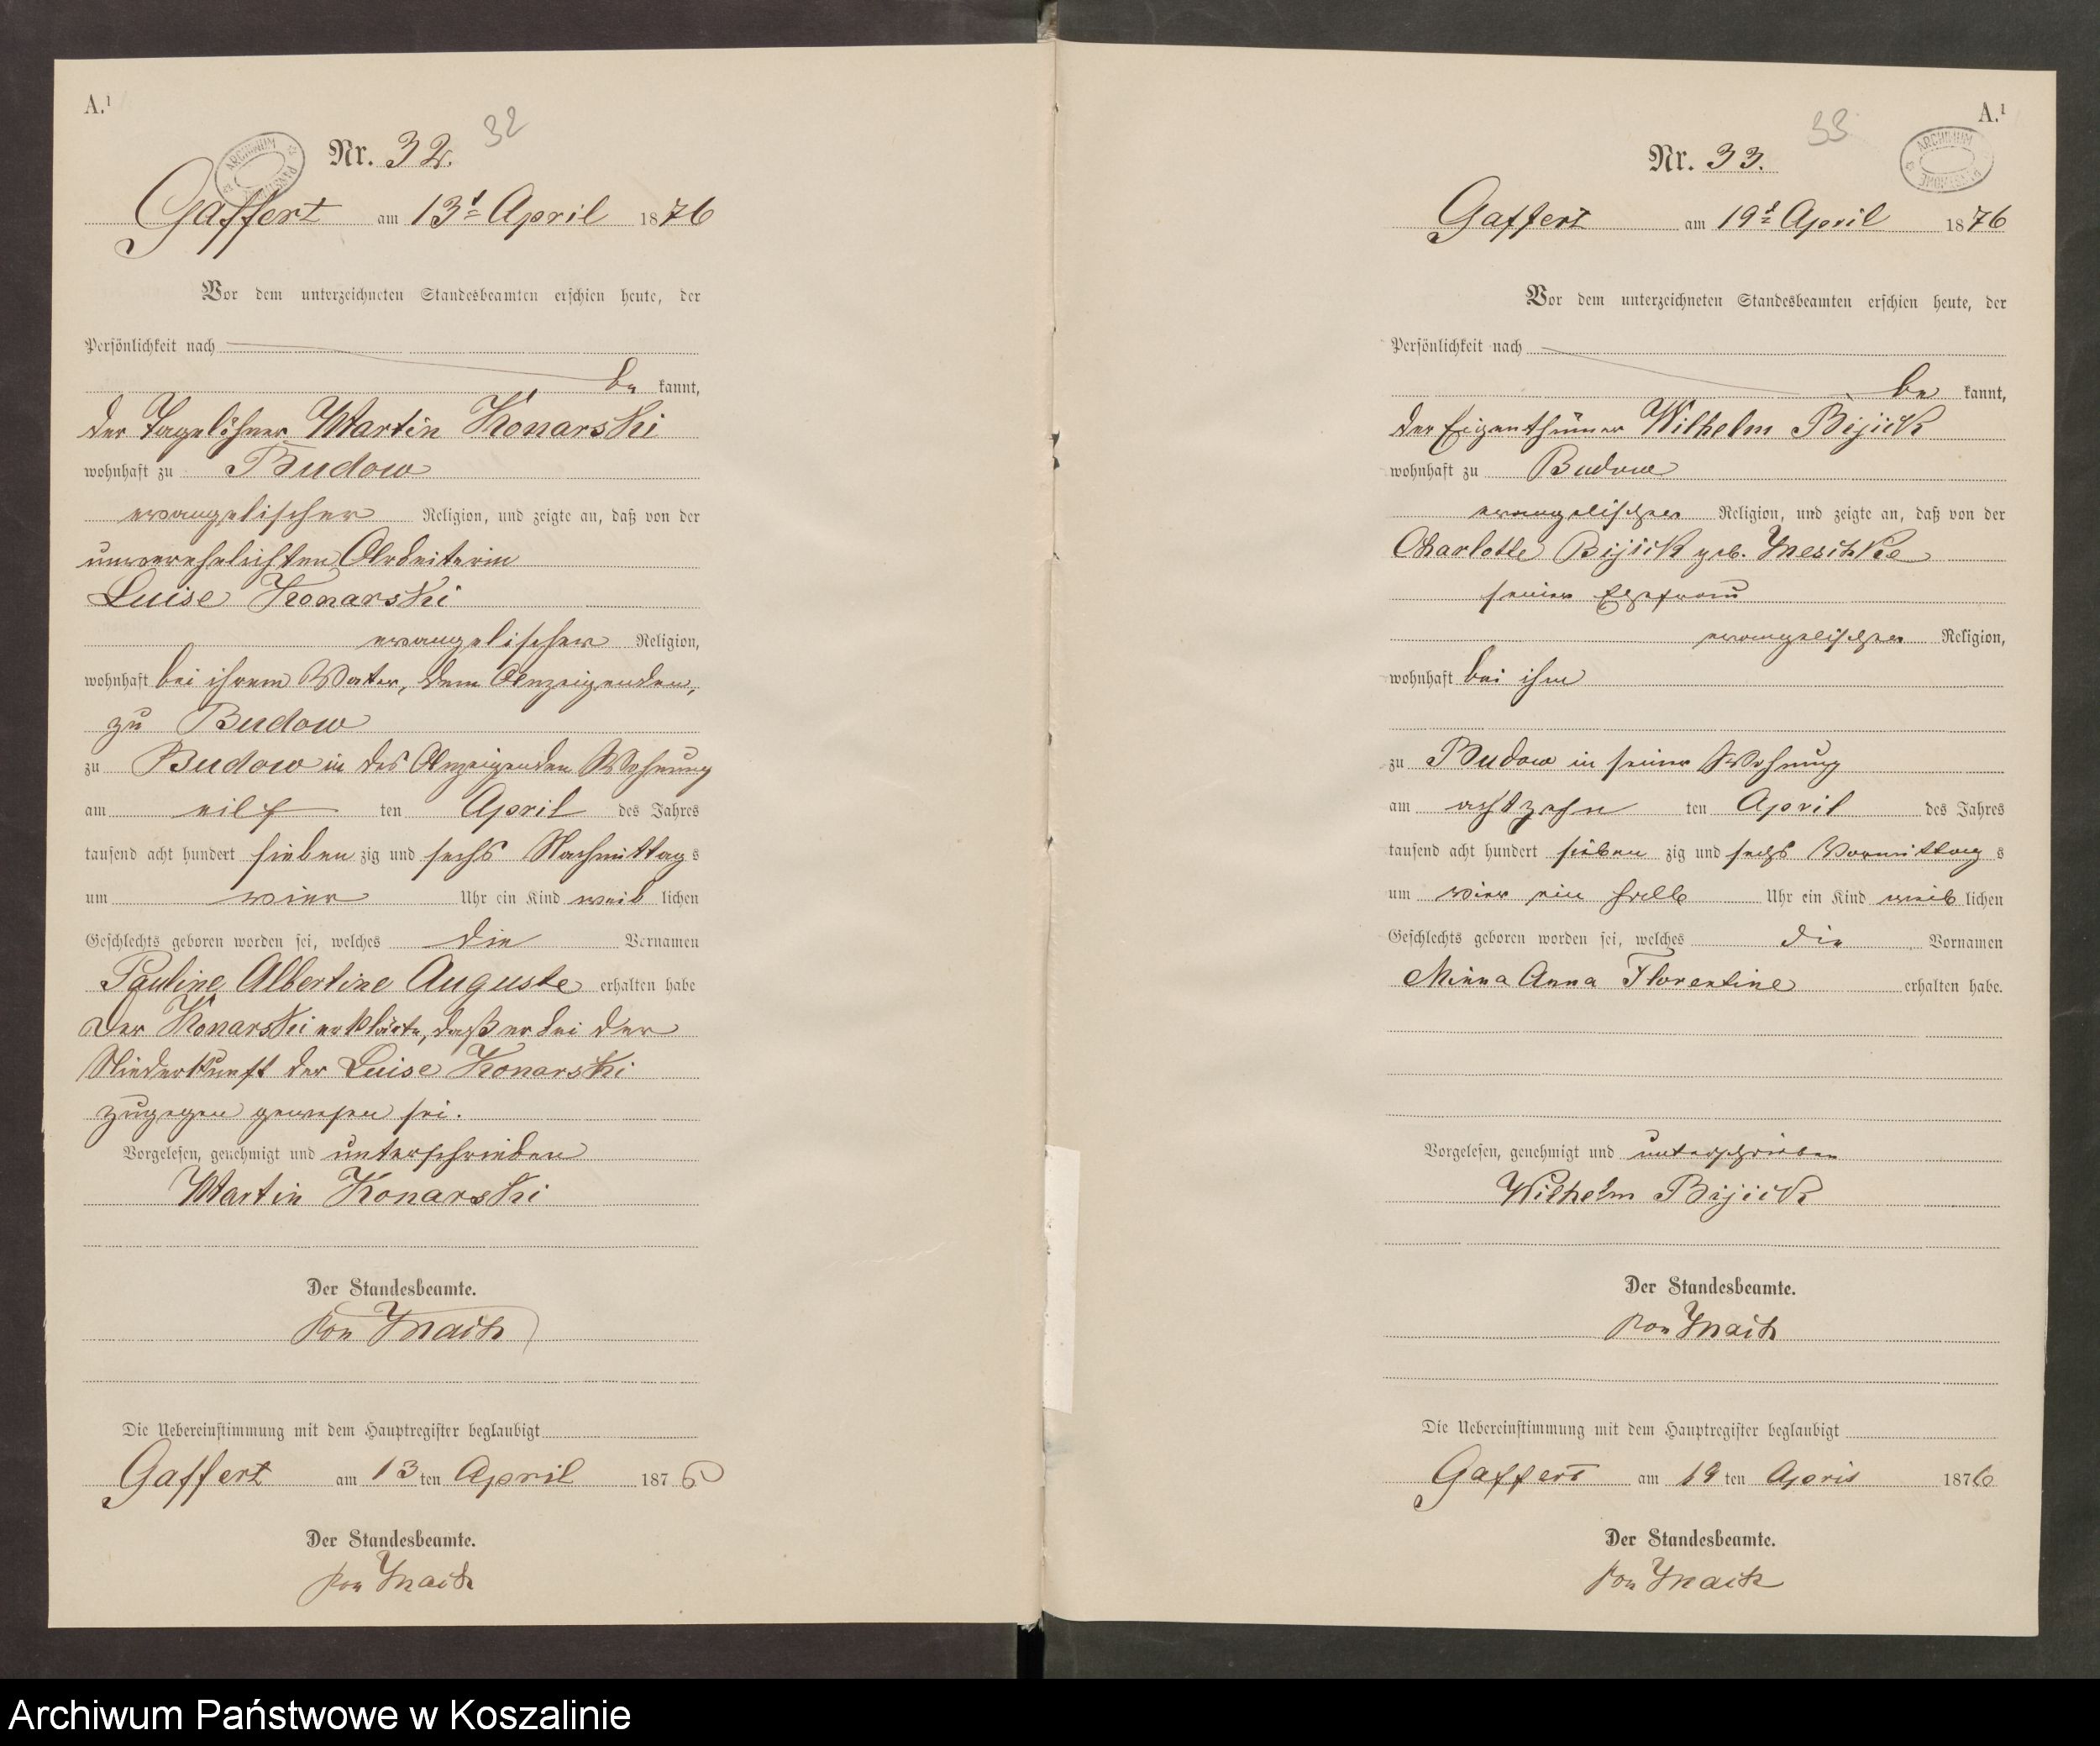 A.¹
32
Nr. 32.
Gaffert am 13t April 1876
Vor dem unterzeichneten Standesbeamten erschien heute, der
Persönlichkeit nach
be kannt,
der Tagelöhner Martin Konarski
wohnhaft zu Budow
evangelischer Religion, und zeigte an, daß von der
unverehelichten Arbeiterin
Luise Konarski
evangelischer Religion,
wohnhaft bei ihrem Vater, dem Anzeigenden,
zu Budow
zu Budow in des Anzeigenden Wohnung
am eilf ten April des Jahres
tausend acht hundert sieben zig und sechs Nachmittag s
um vier Uhr ein Kind weib lichen
Geschlechts geboren worden sei, welches die Vornamen
Pauline Albertine Auguste erhalten habe
Der Konarski erklärte, daß er bei der
Niederkunft der Luise Konarski
zugegen gewesen sei.
Vorgelesen, genehmigt und unterschrieben
Martin Konarski
Der Standesbeamte.
von
Die Uebereinstimmung mit dem Hauptregister beglaubigt
Gaffert am 13 ten April 1876
Der Standesbeamte.
von
A.¹
33
Nr. 33.
ARCHIWUM
Gaffert am 19t April 1876
Vor dem unterzeichneten Standesbeamten erschien heute, der
Persönlichkeit nach
be kannt,
der Eigenthümer Wilhelm Bijick
wohnhaft zu Budow
evangelischer Religion, und zeigte an, daß von der
Charlotte Bijick geb.
seiner Ehefrau
evangelischer Religion,
wohnhaft bei ihm
zu Budow in seiner Wohnung
am achtzehn ten April des Jahres
tausend acht hundert sieben zig und sechs Vormittag s
um vier ein halb Uhr ein Kind weib lichen
Geschlechts geboren worden sei, welches die Vornamen
Minna Anna Florentine erhalten habe.
Vorgelesen, genehmigt und unterschrieben
Wilhelm Bijick
Der Standesbeamte.
von
Die Uebereinstimmung mit dem Hauptregister beglaubigt
Gaffert am 19 ten April 1876
Der Standesbeamte.
von
Archiwum Państwowe w Koszalinie